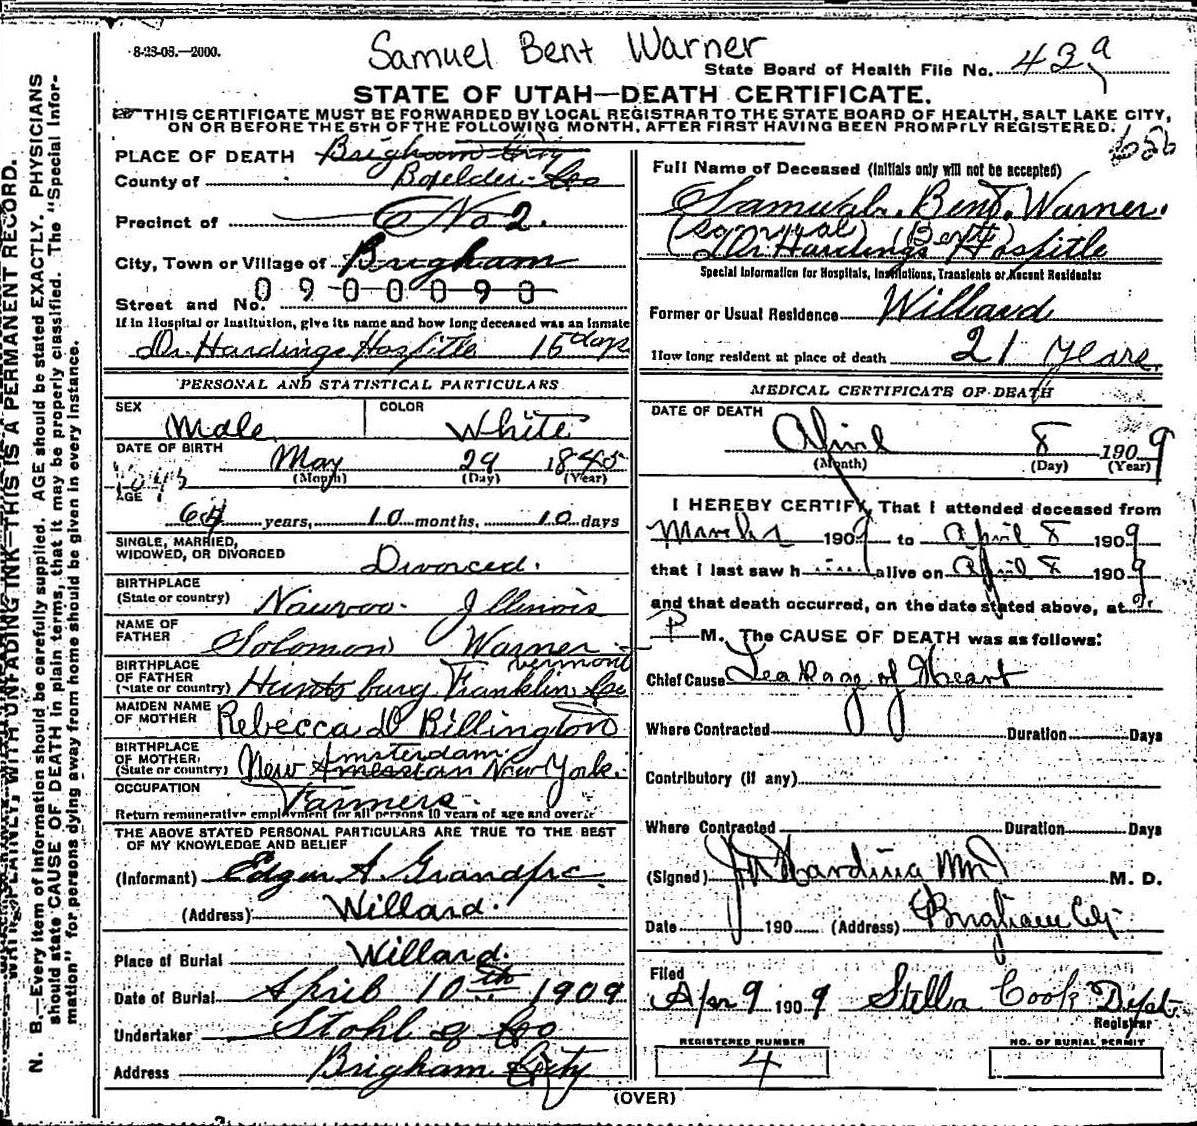 8-23-08.—2000.
Samuel Bent Warner
State Board of Health File No. 43a
STATE OF UTAH—DEATH CERTIFICATE.
THIS CERTIFICATE MUST BE FORWARDED BY LOCAL REGISTRAR TO THE STATE BOARD OF HEALTH, SALT LAKE CITY,
ON OR BEFORE THE 5TH OF THE FOLLOWING MONTH, AFTER FIRST HAVING BEEN PROMPTLY REGISTERED.
PLACE OF DEATH Brigham City
County of Boxelder Co
Precinct of No 2.
City, Town or Village of Brigham
Street and No. 0 9 0 0 0 9 0
If in Hospital or Institution, give its name and how long deceased was an inmate
Dr. Hardings Hospitle 15 days
PERSONAL AND STATISTICAL PARTICULARS
SEX Male
COLOR White
DATE OF BIRTH May 29 1845
(Month) (Day) (Year)
AGE 64 years, 10 months, 10 days
SINGLE, MARRIED,
WIDOWED, OR DIVORCED Divorced.
BIRTHPLACE
(State or country) Nauvoo. Illinois
NAME OF
FATHER Solomon Warner
BIRTHPLACE
OF FATHER Vermont
(State or country) Huntsburg Franklin Co
MAIDEN NAME
OF MOTHER Rebecca D Billington
BIRTHPLACE
OF MOTHER Amsterdam
(State or country) New York.
OCCUPATION Farmers.
Return remunerative employment for all persons 10 years of age and over
THE ABOVE STATED PERSONAL PARTICULARS ARE TRUE TO THE BEST
OF MY KNOWLEDGE AND BELIEF
(Informant) Edgar A.
(Address) Willard.
Place of Burial Willard.
Date of Burial April 10th 1909
Undertaker Stohl & Co
Address Brigham City
Full Name of Deceased (Initials only will not be accepted)
Bent. Warner.
Dr Hardings Hospitle
Special Information for Hospitals, Institutions, Transients or Recent Residents:
Former or Usual Residence Willard
How long resident at place of death 21 Years.
MEDICAL CERTIFICATE OF DEATH
DATE OF DEATH
April 8 1909
(Month) (Day) (Year)
I HEREBY CERTIFY, That I attended deceased from
March 1909 to April 8 1909
that I last saw him alive on April 8 1909
and that death occurred, on the date stated above, at
P M. The CAUSE OF DEATH was as follows:
Chief Cause Leakage of Heart
Where Contracted Duration Days
Contributory (if any)
Where Contracted Duration Days
(Signed) Harding M. D.
Date 190 (Address) Brigham City
Filed
Apr 9 1909 Stella Cook Dept
Registrar
REGISTERED NUMBER
4
NO. OF BURIAL PERMIT
(OVER)
N. B.—Every item of information should be carefully supplied. AGE should be stated EXACTLY. PHYSICIANS
should state CAUSE OF DEATH in plain terms, that it may be properly classified. The "Special Infor-
mation" for persons dying away from home should be given in every instance.
WRITE PLAINLY, WITH UNFADING INK—THIS IS A PERMANENT RECORD.